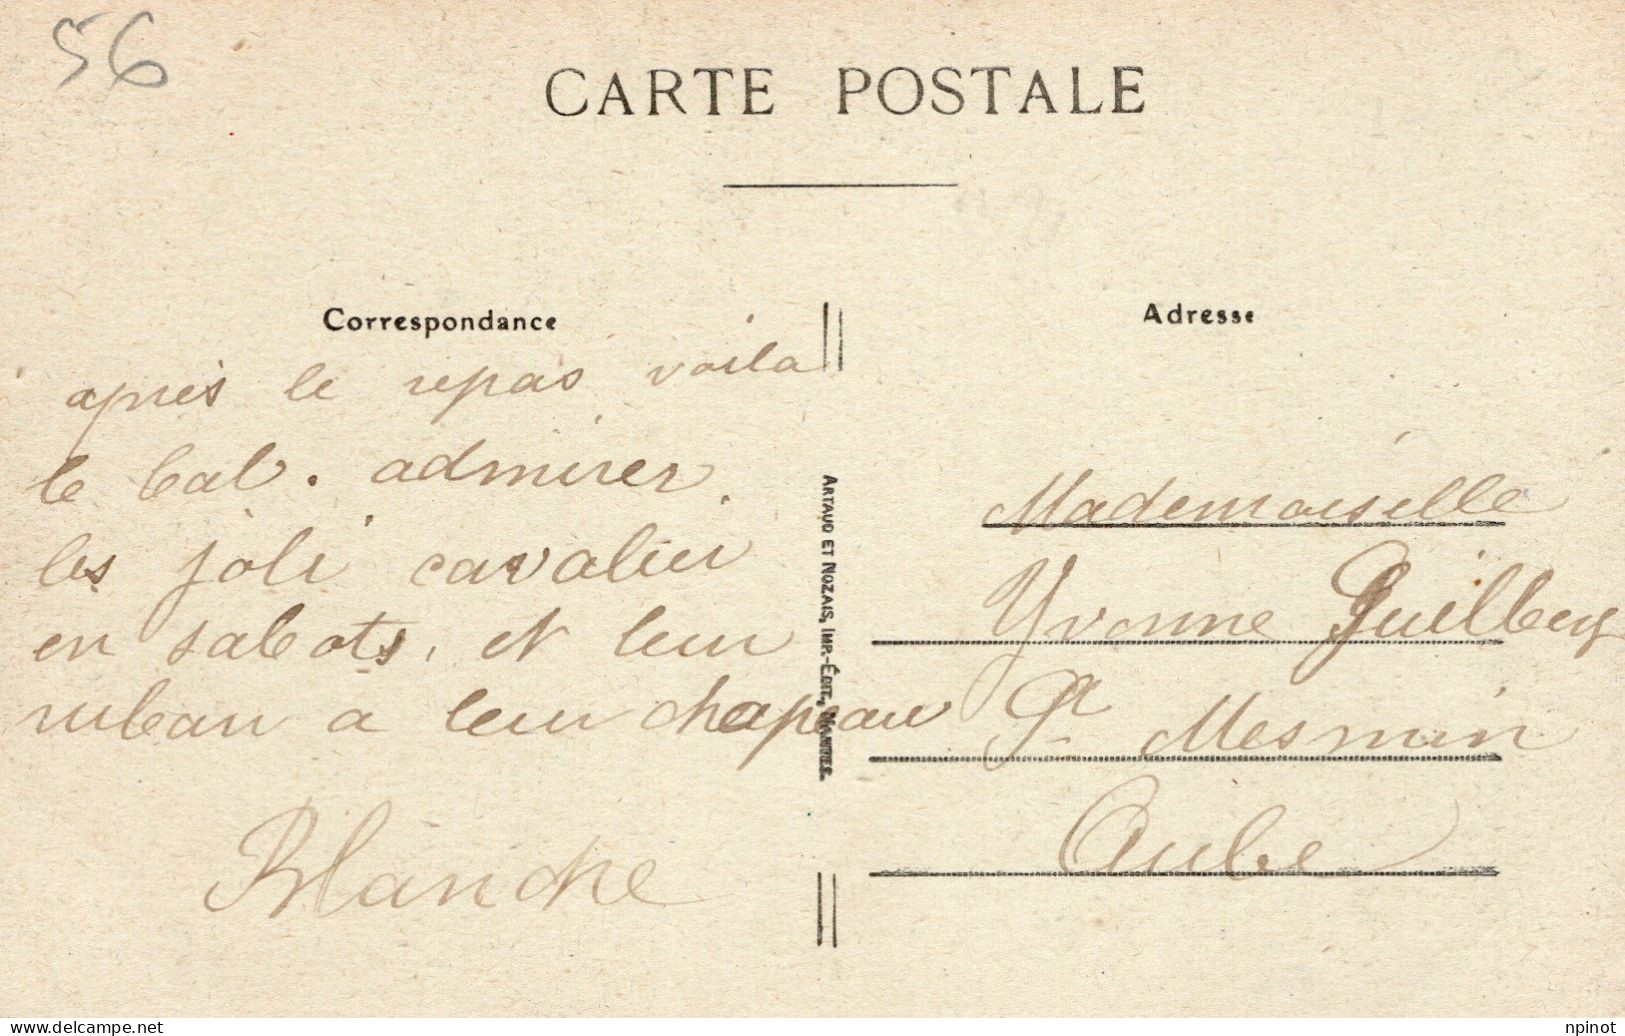 56
CARTE POSTALE
Correspondance
après le repas voila
le bal. admirer
les joli cavalier
en sabots, et leur
ruban a leur chapeau
Blanche
ARTAUD ET NOZAIS, IMP.-ÉDIT., NANTES.
Adresse
Mademoiselle
Yvonne
St Mesmin
Aube
npinot